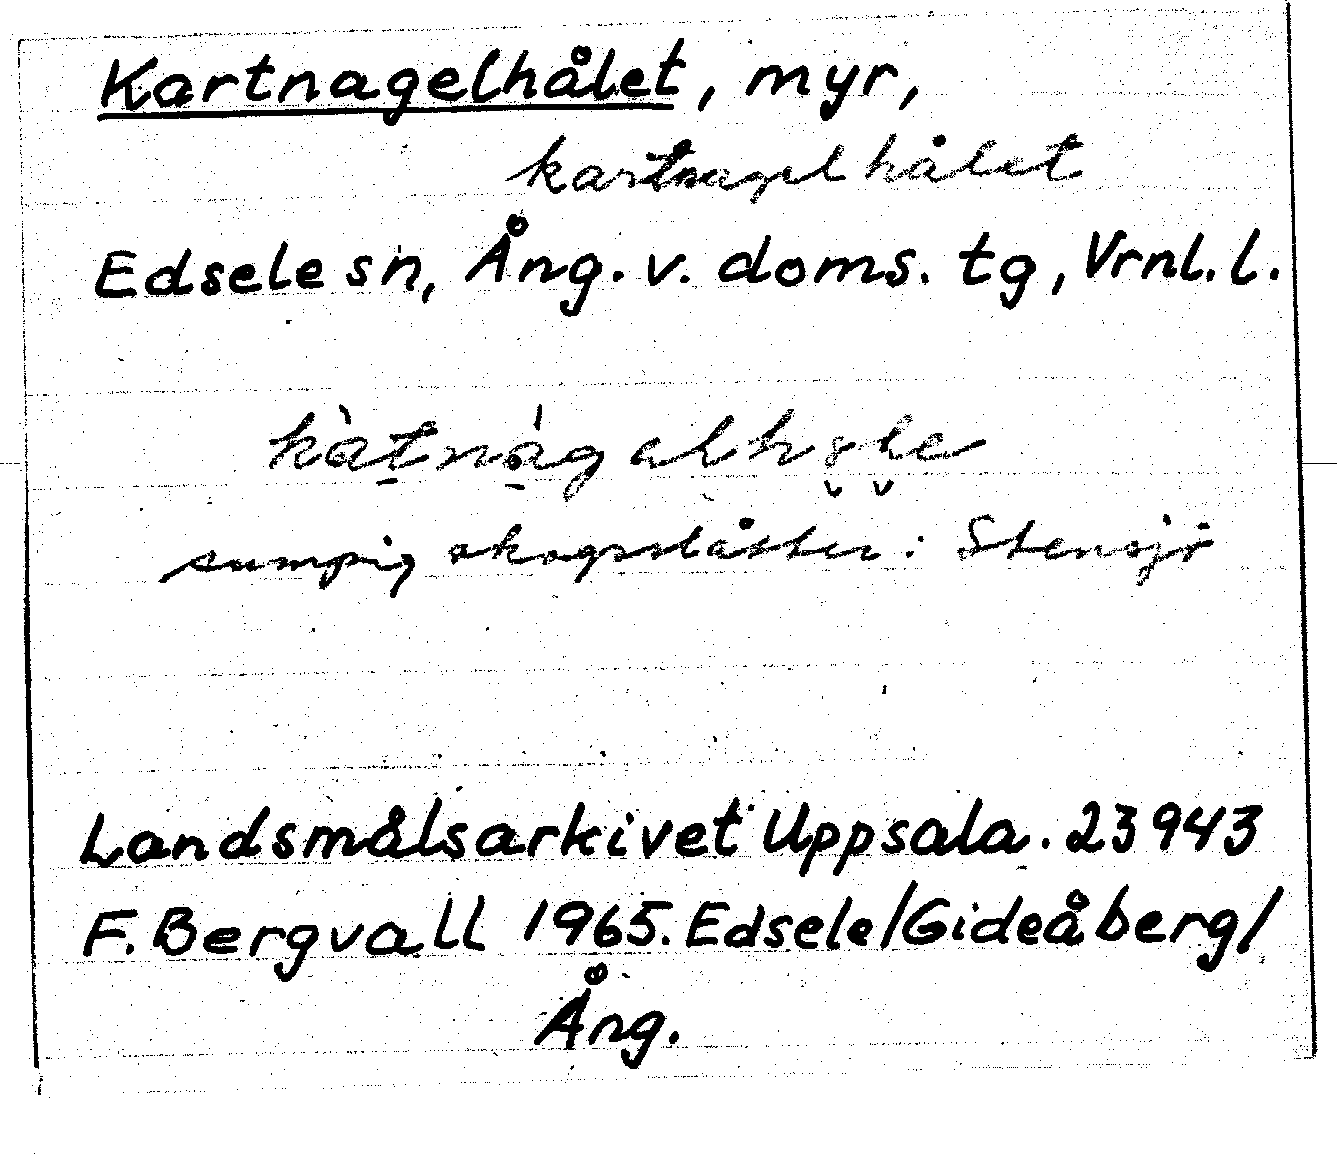 Kartnagelhålet, myr,
kartnagelhålet
Edsele sn, Ång. v. doms. tg, Vrnl. l.
sumpig skogsslåtter: Stensjö
Landsmålsarkivet Uppsala. 23943
F. Bergvall 1965. Edsele/Gideåberg/
Ång.